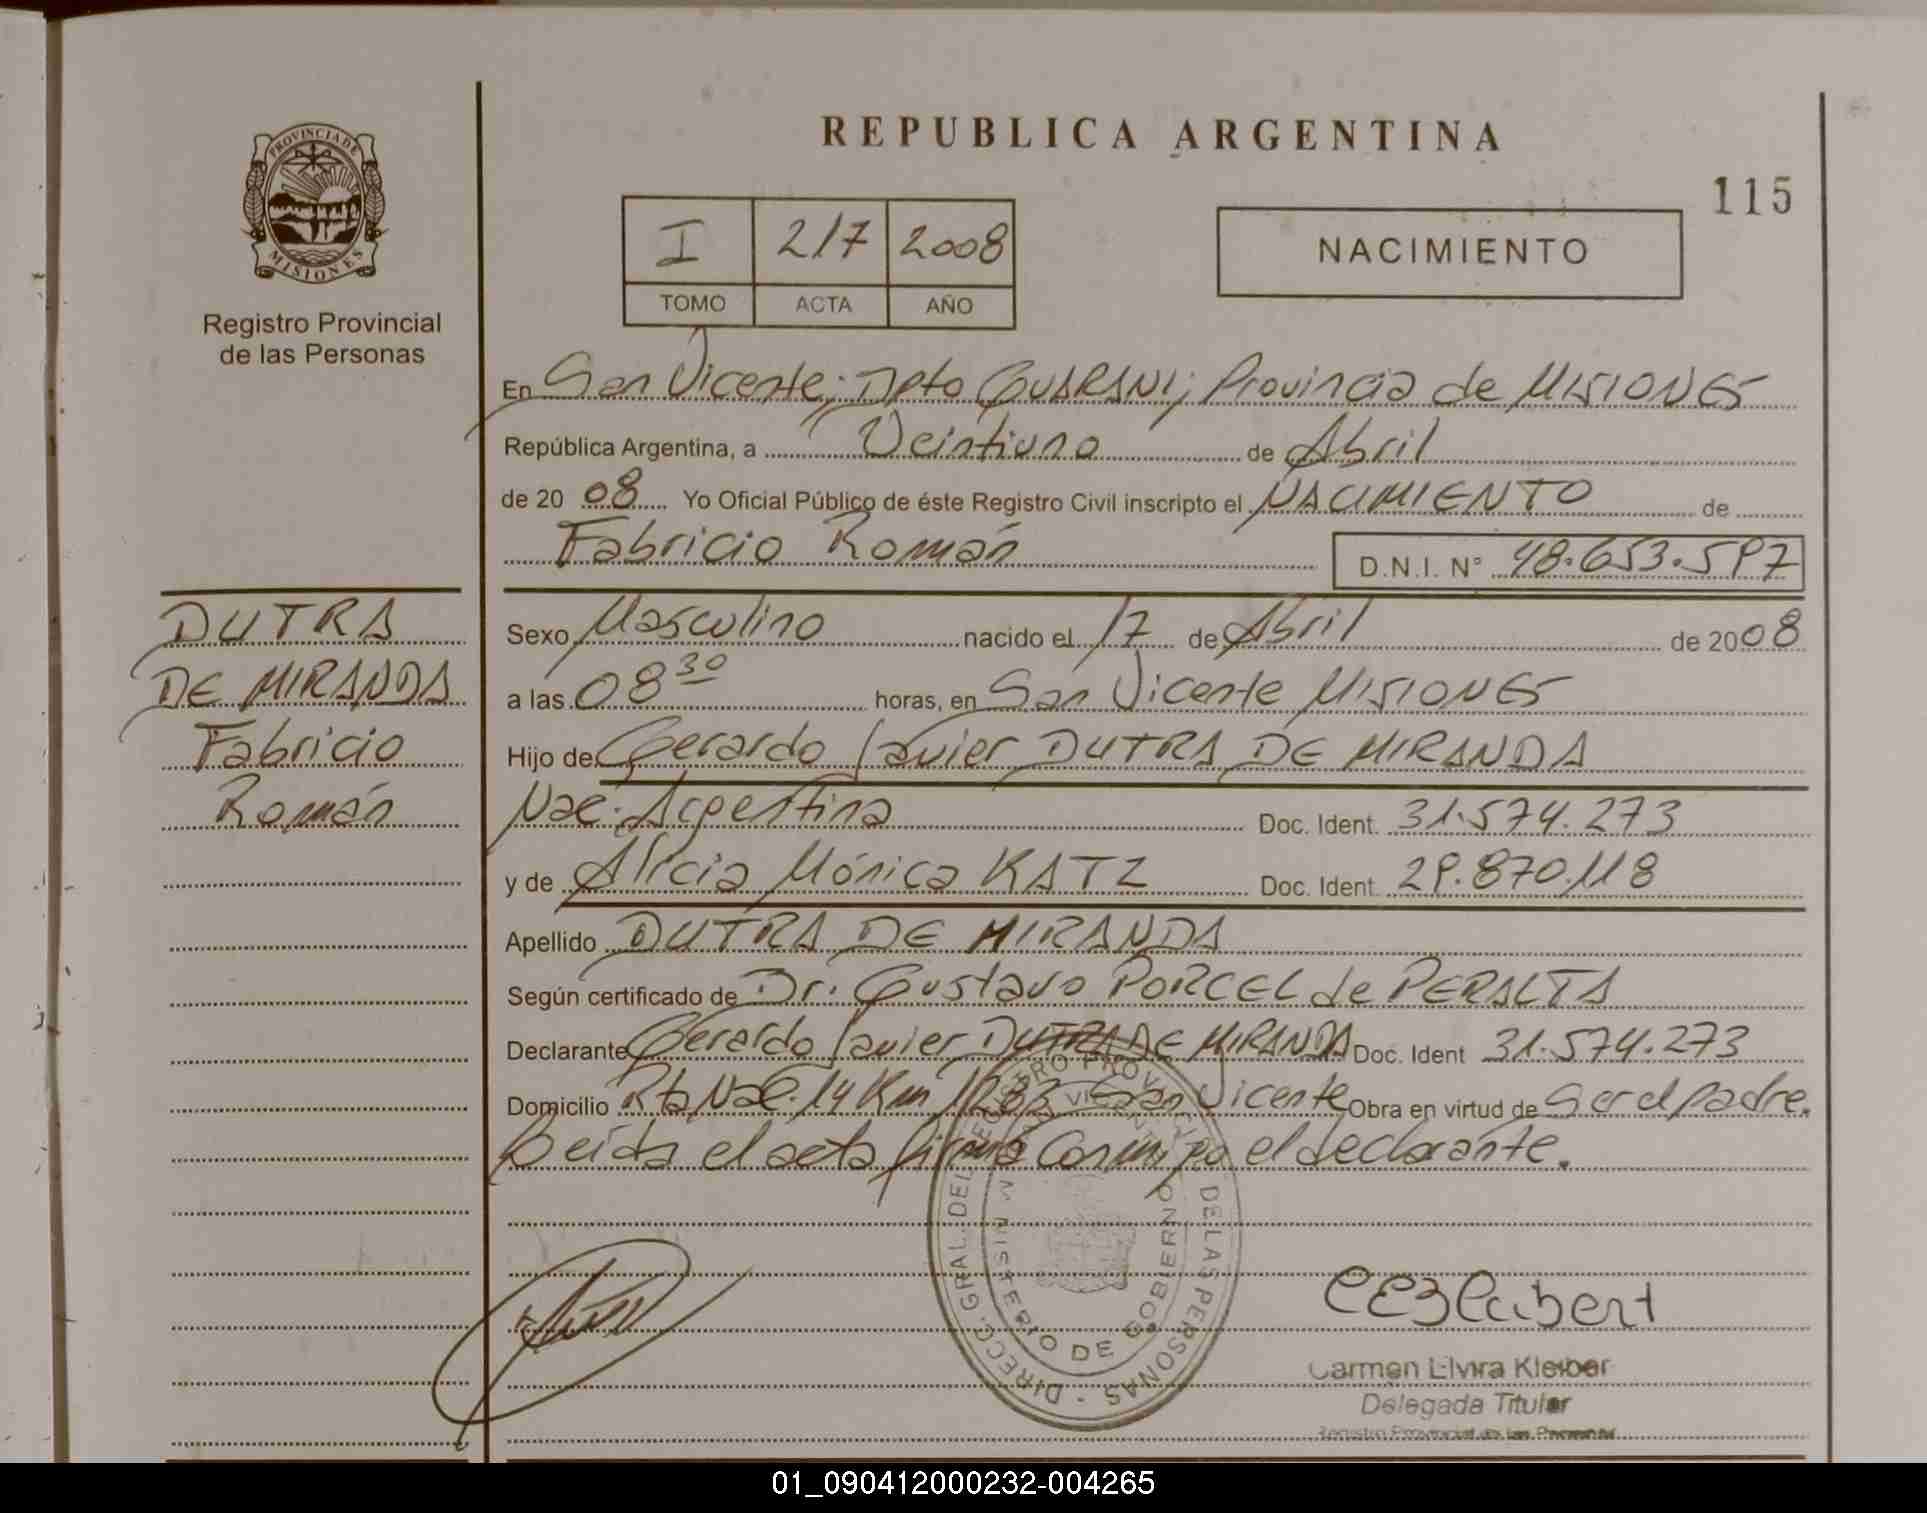 REPUBLICA ARGENTINA
115
PROVINCIA DE
MISIONES
Registro Provincial
de las Personas
I 217 2008
TOMO ACTA AÑO
NACIMIENTO
En San Vicente; Dpto GUARANI; Provincia de MISIONES
República Argentina, a Veintiuno de Abril
de 20 08 Yo Oficial Público de éste Registro Civil inscripto el NACIMIENTO de
Fabricio Román D.N.I. N° 48.653.597
DUTRA
DE MIRANDA
Fabricio
Román
Sexo Masculino nacido el 17 de Abril de 2008
a las 08 30 horas, en San Vicente MISIONES
Hijo de Gerardo Javier DUTRA DE MIRANDA
Nac. Argentina Doc. Ident. 31.574.273
y de Alicia Mónica KATZ Doc. Ident. 29.870.118
Apellido DUTRA DE MIRANDA
Según certificado de Dr. Gustavo PORCEL de PERALTA
Declarante Gerardo Javier DUTRA DE MIRANDA Doc. Ident 31.574.273
Domicilio Rta Nac. 14 Km San Vicente Obra en virtud de Ser el padre.
Leída el acta firma Conmigo el declarante.
DIRECC. GRAL. DEL REGISTRO PROVINCIAL DE LAS PERSONAS
MINISTERIO DE GOBIERNO
Carmen Elvira Kleiber
Delegada Titular
Registro Provincial de las Personas
01_090412000232-004265